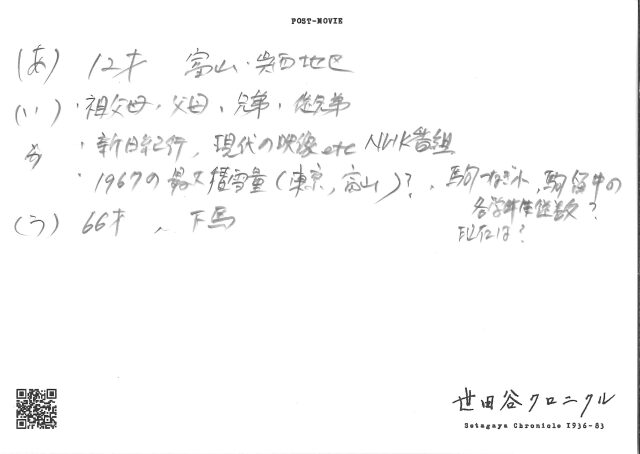 POST-MOVIE
(あ) 12才 富山・呉西地区
(い)・祖父母・父母・兄弟・従兄弟
・新日紀行, 現代の映像 etc NHK番組
・1967の最大積雪量(東京,富山)?
・駒つなぎ小, 駒留中の
各学年生徒数?
現在は?
(う) 66才 、下馬
世田谷クロニクル
Setagaya Chronicle 1936-83